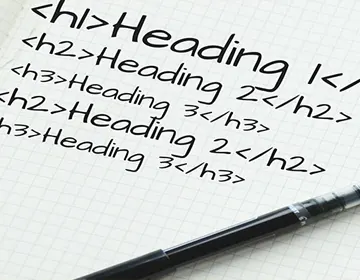 <h1>Heading 1</
<h2>Heading 2</h2>
<h3>Heading 3</h3>
<h2>Heading 2</h2>
h3>Heading 3</h3>